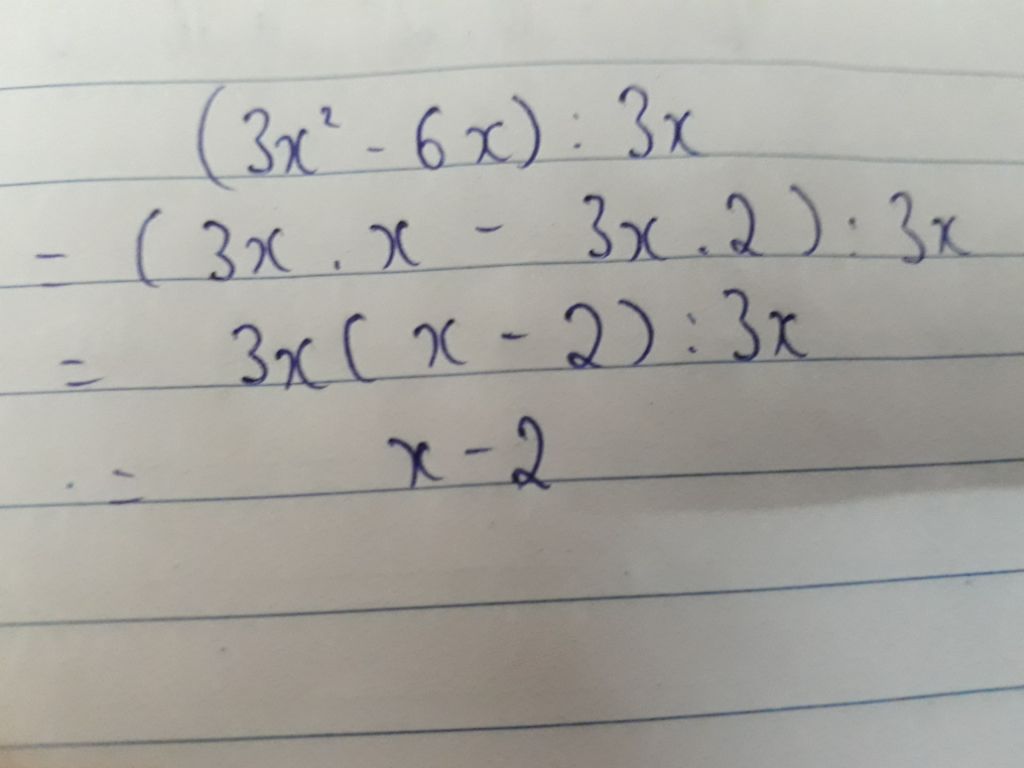 (3x² - 6x) : 3x
= (3x . x - 3x . 2) : 3x
= 3x(x - 2) : 3x
= x - 2